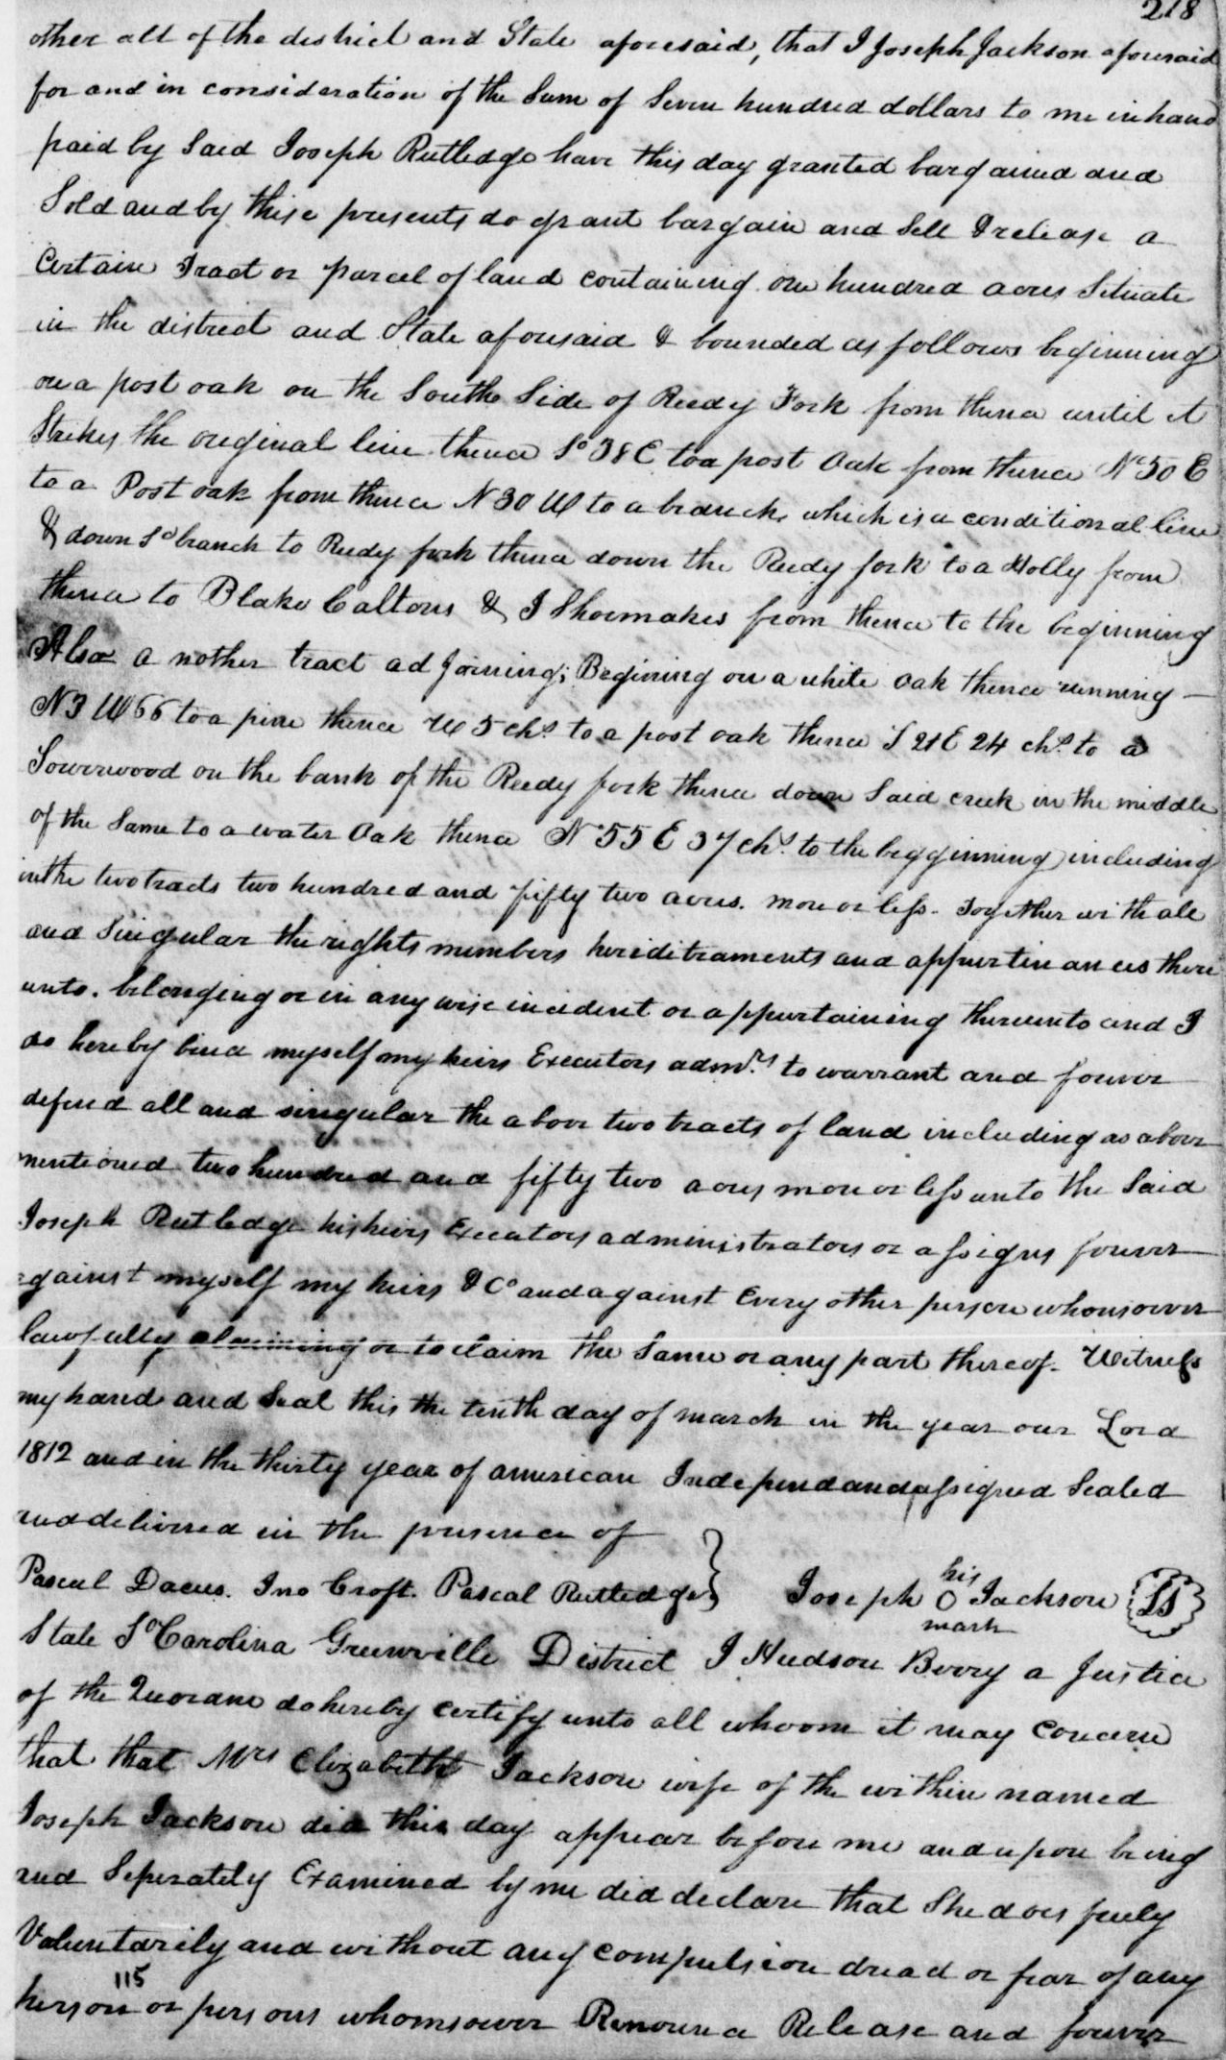 218
other all of the district and State aforesaid, that I Joseph Jackson aforesaid
for and in consideration of the Sum of Seven hundred dollars to me in hand
paid by Said Joseph Rutledge have this day granted bargained and
Sold and by these presents do grant bargain and Sell & release a
Certain Tract or parcel of land containing one hundred acres Situate
in the district and State aforesaid & bounded as follows beginning
on a post oak on the South Side of Reedy Fork from thence until it
Strikes the original line thence So 38 E to a post Oak from thence No 50 E
to a Post oak from thence N 30 W to a branch, which is a conditional line
& down sd branch to Reedy fork thence down the Reedy fork to a Holly from
thence to Blake Caltons & J Shoemakes from thence to the beginning
Also a nother tract ad Joining; Begining on a white oak thence running
N 3 W 66 to a pine thence W 5 chs to a post oak thence S 21 E 24 chs to a
Sourwood on the bank of the Reedy fork thence down Said creek in the middle
of the Same to a water Oak thence N 55 E 37 chs to the begginning including
in the two tracts two hundred and fifty two acres. more or less. Together with all
and Singular the rights members hereditraments and appurtinances there
unto. belonging or in any wise incident or appurtaining thereunto and I
do hereby bind myself my heirs Executors admrs to warrant and forever
defend all and singular the above two tracts of land including as above
mentioned two hundred and fifty two acres more or less unto the Said
Joseph Rutledge his heirs Executors administrators or assigns forever
against myself my heirs &C and against Every other person whomsoever
lawfully claiming or to claim the Same or any part thereof. Witness
my hand and Seal this the tenth day of march in the year our Lord
1812 and in the thirty year of american Independand assigned Sealed
and delivered in the presence of
Pascal Dacus. Jno Croft. Pascal Rutledge} Joseph his O mark Jackson LS
State So Carolina Greenville District I Hudson Berry a Justice
of the Quoram do hereby certify unto all whoom it may Concern
that that Mrs Elizabeth Jackson wife of the within named
Joseph Jackson did this day appear before me and upon being
and Seperately Examined by me did declare that She does freely
Voluntarily and without any compulsion dread or fear of any
115
person or persons whomsoever Renounce Release and forever